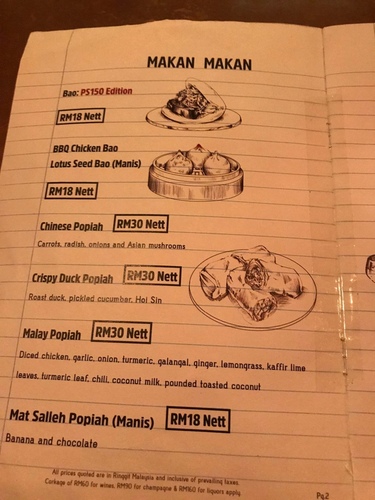 MAKAN MAKAN
Bao: PS150 Edition
RM18 Nett
BBQ Chicken Bao
Lotus Seed Bao (Manis)
RM18 Nett
Chinese Popiah RM30 Nett
Carrots, radish, onions and Asian mushrooms
Crispy Duck Popiah RM30 Nett
Roast duck, pickled cucumber, Hoi Sin
Malay Popiah RM30 Nett
Diced chicken, garlic, onion, turmeric, galangal, ginger, lemongrass, kaffir lime
leaves, turmeric leaf, chili, coconut milk, pounded toasted coconut
Mat Salleh Popiah (Manis) RM18 Nett
Banana and chocolate
All prices quoted are in Ringgit Malaysia and inclusive of prevailing taxes
Corkage of RM60 for wines, RM90 for champagne & RM160 for liquors apply
Pg.2